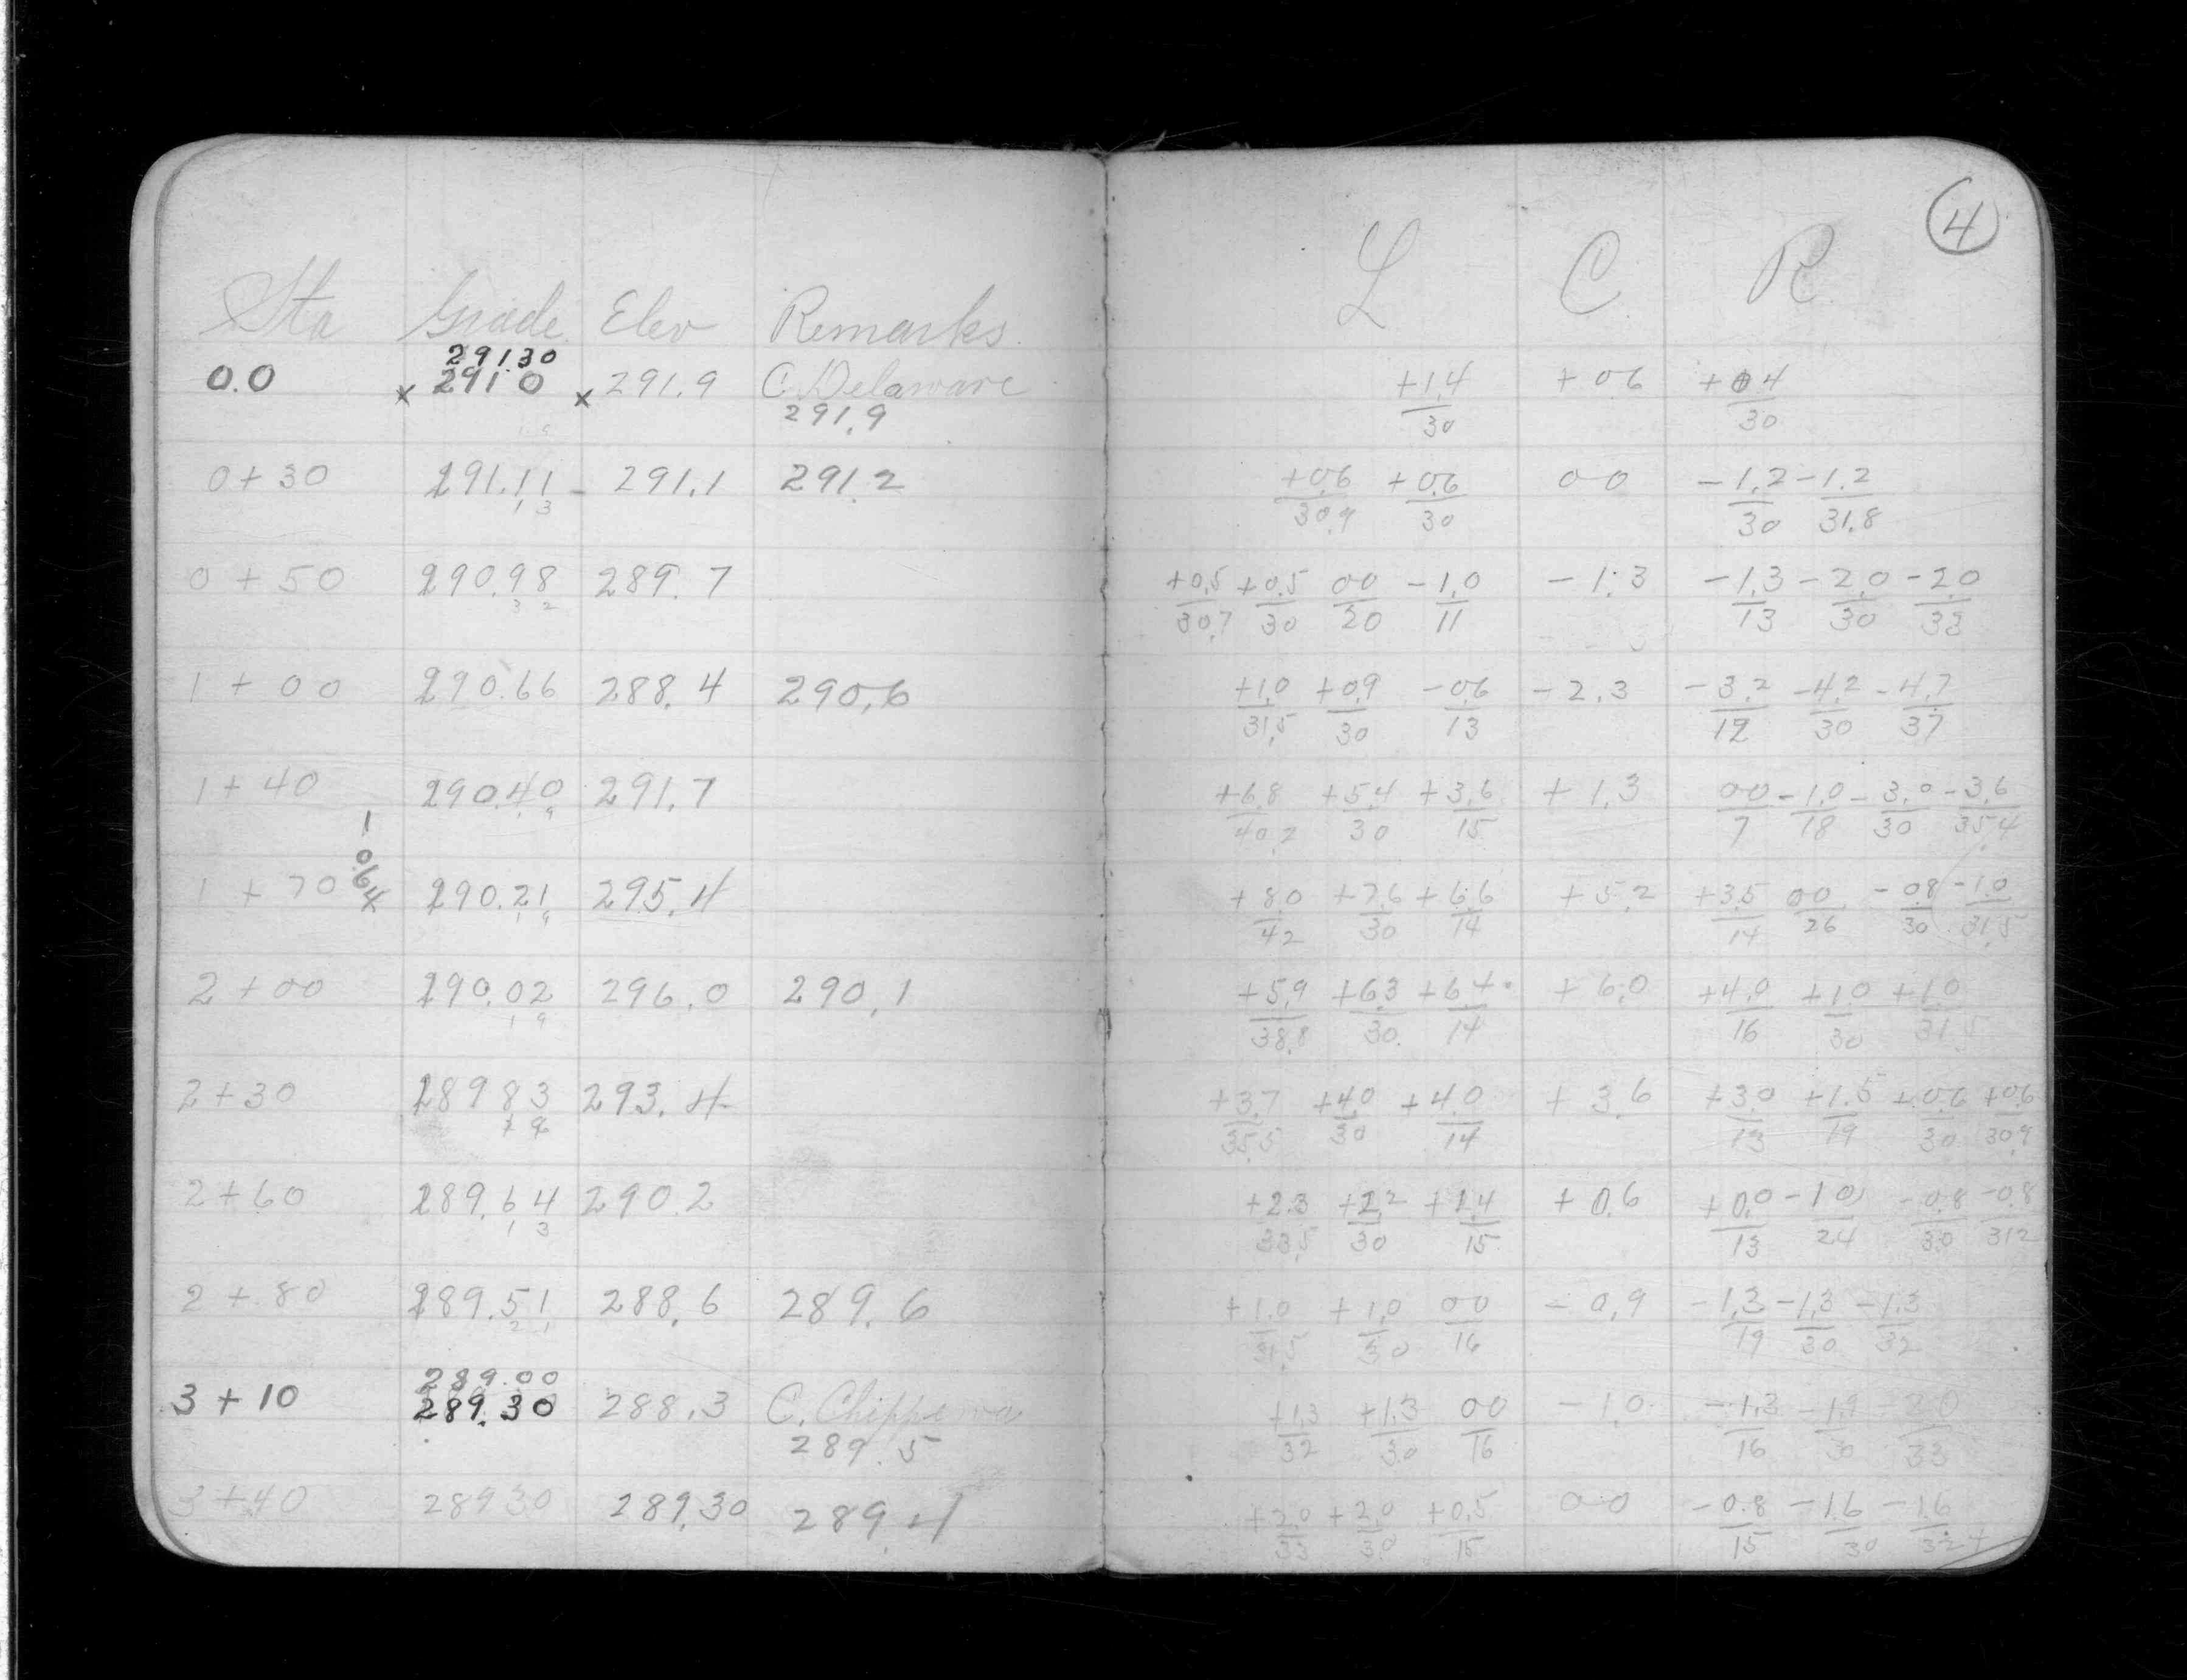 4
Sta Grade Elev Remarks L C R
291.30
0.0 x 291.0 x 291.9 C. Delaware +1.4 +0.6 +0.4
291.9 30 30
0+30 291.11 - 291.1 291.2 +0.6 +0.6 0 0 -1.2 -1.2
1 3 30.9 30 30 31.8
0+50 290.98 289.7 +0.5 +0.5 00 -1.0 -1.3 -1.3 -2.0 -2.0
3 2 30.7 30 20 11 13 30 33
1+00 290.66 288.4 290.6 +1.0 +0.9 -0.6 -2.3 -3.2 -4.2 -4.7
31.5 30 13 19 30 37
1+40 290.40 291.7 +6.8 +5.4 +3.6 +1.3 00 -1.0 -3.0 -3.6
1 9 40.2 30 15 7 18 30 35.4
1 0.64
1+70 290.21 295.4 +8.0 +7.6 +6.6 +5.2 +3.5 00 -0.8 -1.0
1 9 42 30 14 14 26 30 31.5
2+00 290.02 296.0 290.1 +5.9 +6.3 +6.4 +6.0 +4.0 +1.0 +1.0
1 9 38.8 30 14 16 30 31.5
2+30 289.83 293.4 +3.7 +4.0 +4.0 +3.6 +3.0 +1.5 +0.6 +0.6
1 9 35.5 30 14 13 19 30 30.9
2+60 289.64 290.2 +2.3 +2.2 +1.4 +0.6 +0.0 -1.0 -0.8 -0.8
1 3 33.5 30 15 13 24 30 31.2
2+80 289.51 288.6 289.6 +1.0 +1.0 00 -0.9 -1.3 -1.3 -1.3
2 1 31.5 30 16 19 30 32
289.00
3+10 289.30 288.3 C. Chippewa +1.3 +1.3 00 -1.0 -1.3 -1.9 -2.0
289.5 32 30 16 16 30 33
3+40 289.30 289.30 289.4 +2.0 +2.0 +0.5 0 0 -0.8 -1.6 -1.6
33 30 15 15 30 32.4